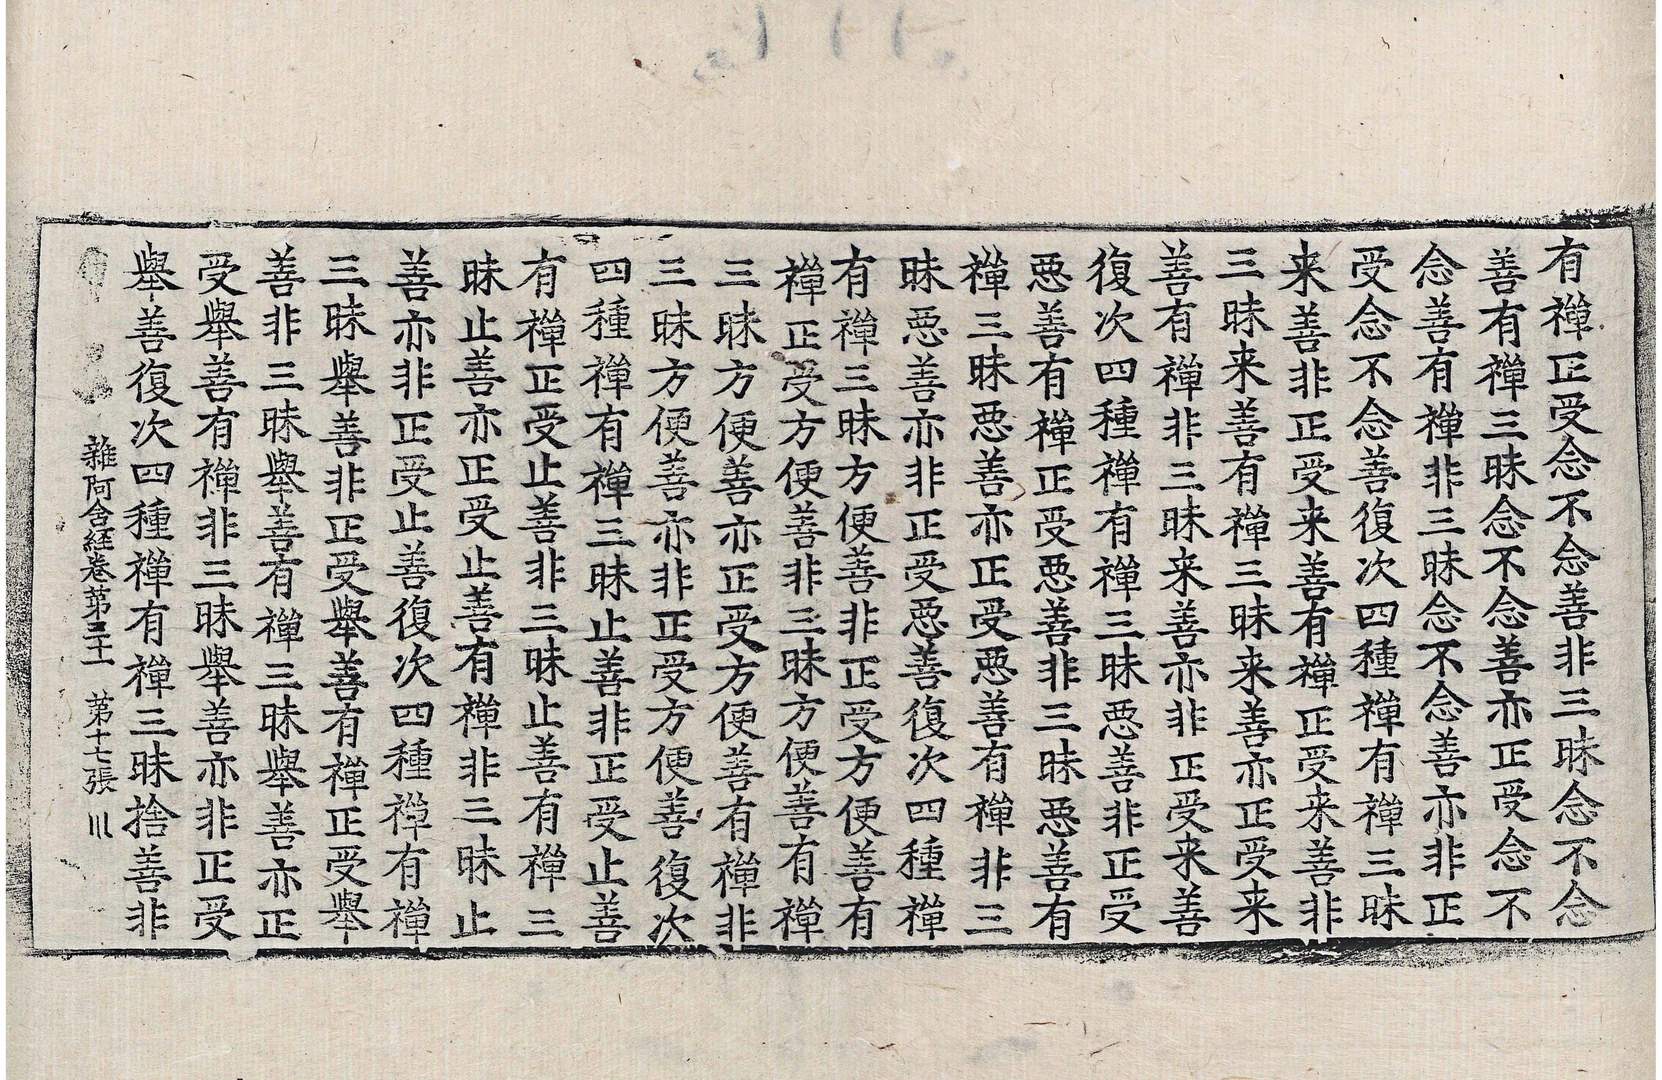 有禪正受念不念善非三昧念不念
善有禪三昧念不念善亦正受念不
念善有禪非三昧念不念善亦非正
受念不念善復次四種禪有禪三昧
来善非正受来善有禪正受来善非
三昧来善有禪三昧来善亦正受来
善有禪非三昧来善亦非正受来善
復次四種禪有禪三昧悪善非正受
悪善有禪正受悪善非三昧悪善有
禪三昧悪善亦正受悪善有禪非三
昧悪善亦非正受悪善復次四種禪
有禪三昧方便善非正受方便善有
禪正受方便善非三昧方便善有禪
三昧方便善亦正受方便善有禪非
三昧方便善亦非正受方便善復次
四種禪有禪三昧止善非正受止善
有禪正受止善非三昧止善有禪三
昧止善亦正受止善有禪非三昧止
善亦非正受止善復次四種禪有禪
三昧舉善非正受舉善有禪正受舉
善非三昧舉善有禪三昧舉善亦正
受舉善有禪非三昧舉善亦非正受
舉善復次四種禪有禪三昧捨善非
雜阿含経卷第三十一 第十七張 川